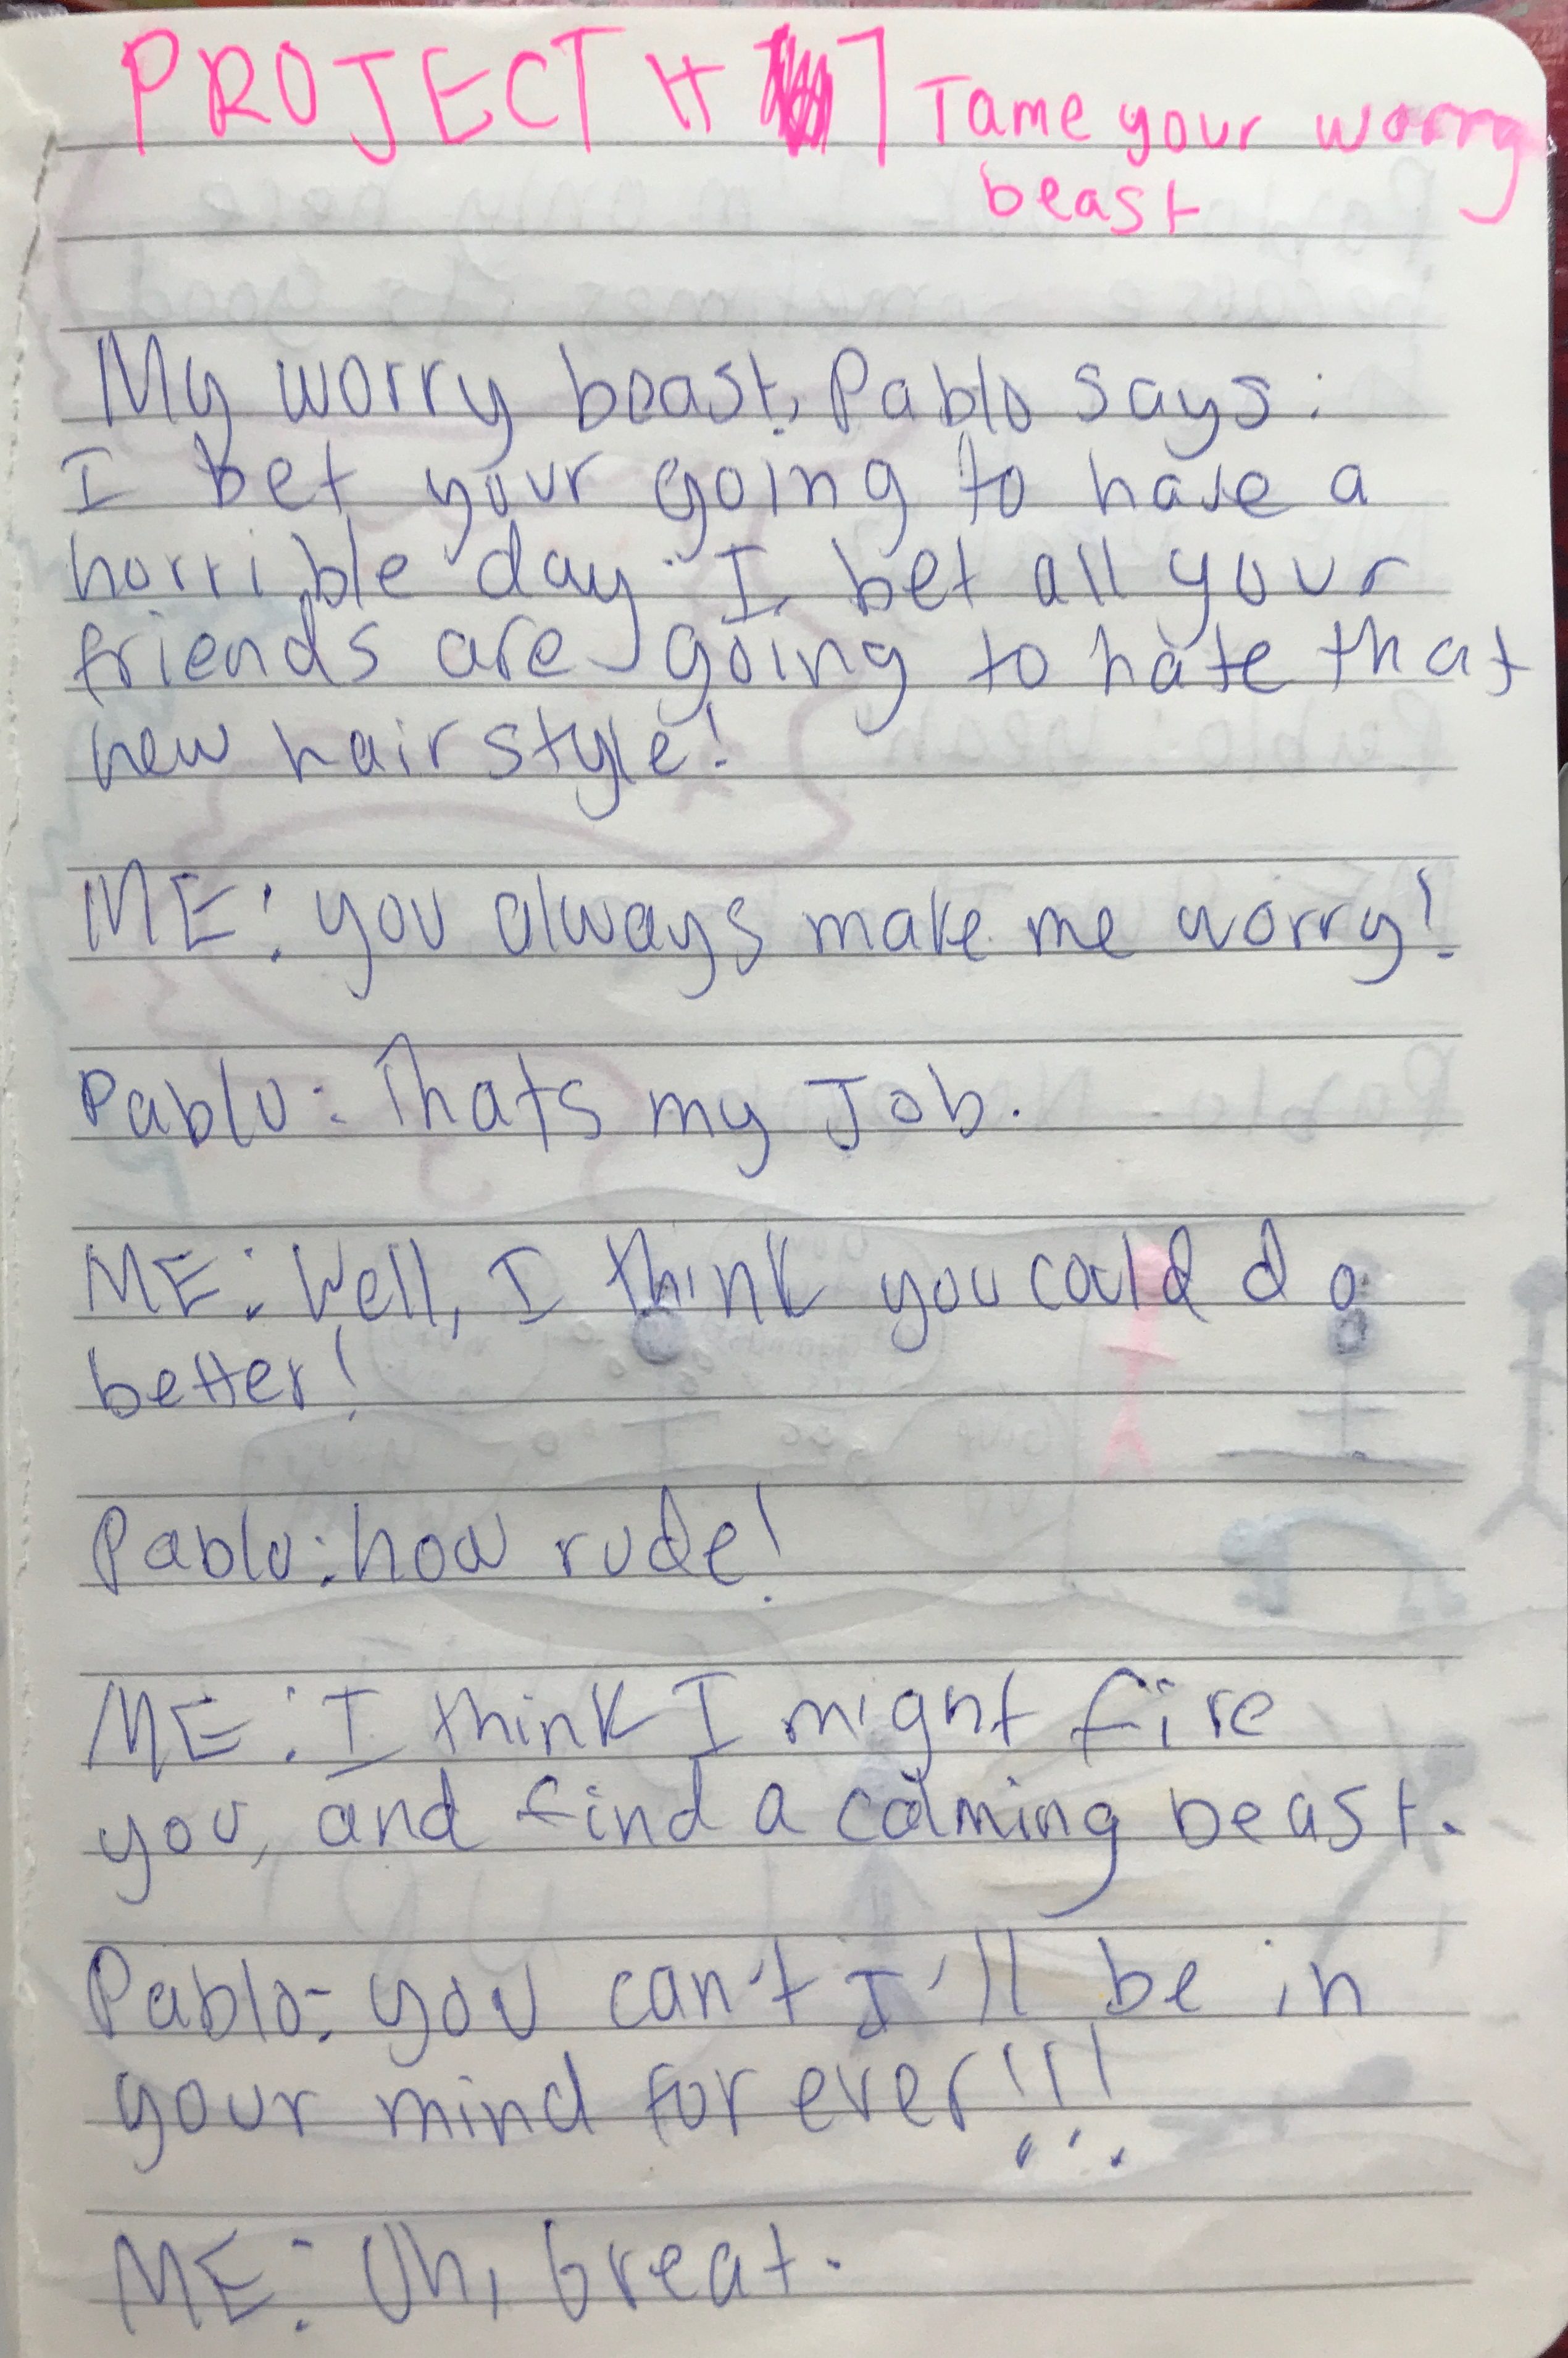 PROJECT # 7 Tame your worry
beast
My worry beast, Pablo says:
I bet your going to have a
horrible day. I bet all your
friends are going to hate that
new hairstyle!
ME: you always make me worry!
Pablo: Thats my Job.
ME: Well, I think you could do
better!
Pablo: how rude!
ME: I think I might fire
you, and find a calming beast.
Pablo: you can't I'll be in
your mind for ever!!!
ME: Oh, Great.